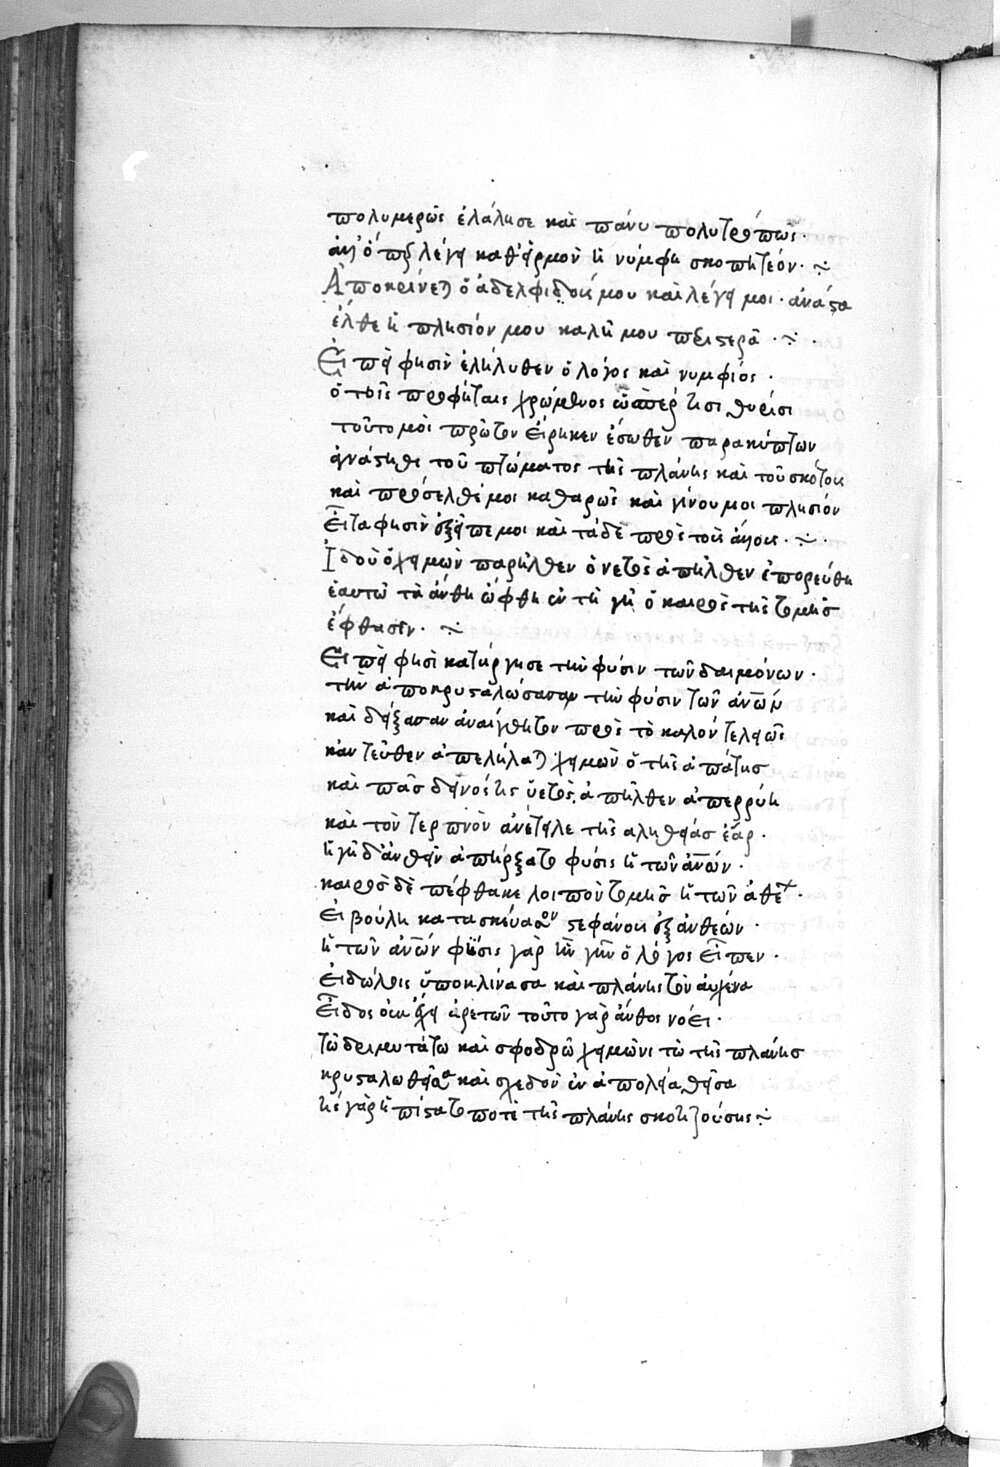 πολυμερῶς ἐλάλησε καὶ πάνυ πολυτρόπως·
λέγει καθ' εἱρμὸν ἡ νύμφη σκοπητέον· ~
Ἀποκρίνεται ὁ ἀδελφιδούς μου καὶ λέγει μοι· ἀνάστα
ἐλθὲ ἡ πλησίον μου καλή μου περιστερά ·~·
Εἰπεῖ φησὶν ἐλήλυθεν ὁ λόγος καὶ νυμφίος·
ὁ τοῖς προφήταις χρώμενος ὥσπερ τισὶ θυρίσι
τοῦτο μοι πρῶτον εἴρηκεν ἔσωθεν παρακύπτων
ἀνάστηθι τοῦ πτώματος τῆς πλάνης καὶ τοῦ σκότους
καὶ πρόσελθέ μοι καθαρῶς καὶ γίνου μοι πλησίον
Εἶτα φησὶν ἐξεῖπε μοι καὶ τάδε πρὸς τοῖς ἄλλοις ·~·
Ἰδοὺ ὁ χειμὼν παρῆλθεν ὁ ὑετὸς ἀπῆλθεν ἐπορεύθη
ἑαυτῷ τὰ ἄνθη ὤφθη ἐν τῇ γῇ ὁ καιρὸς τῆς τομῆς
ἔφθασεν· ~
Εἰπεῖ φησὶ κατήργησε τὴν φύσιν τῶν δαιμόνων·
τὴν ἀποκρυσταλώσασαν τὴν φύσιν τῶν ἀνων
καὶ δείξασαν ἀναίσθητον πρὸς τὸ καλὸν τελείως
κἀντεῦθεν ἀπελήλαται χειμὼν ὁ τῆς ἀπάτης
καὶ πᾶς δεινός τις ὑετὸς ἀπῆλθεν ἀπερρύη
καὶ τὸν τερπνὸν ἀνέτειλε τῆς ἀληθείας ἔαρ·
ἡ γῆ δ' ἀνθεῖν ἀπήρξατο φύσις ἡ τῶν ἀνων·
καιρὸς δὲ πέφθακε λοιπὸν τομῆς ἡ τῶν ἀθε·
Εἰ βούλη κατασκεύασον στεφάνους ἐξ ἀνθέων·
ἡ τῶν ἀνων φύσις γὰρ ἣν γῆν ὁ λόγος εἶπεν·
Εἰδώλοις ὑποκλίνασα καὶ πλάνης τὸν αὐχένα
Εἶδος ἀρετῶν τοῦτο γὰρ ἄνθος νόει·
τῷ δριμυτάτῳ καὶ σφοδρῷ χειμῶνι τῷ τῆς πλάνης
κρυσταλωθεῖσα καὶ σχεδὸν ἐν ἀπολεία θεῖσα
τίς γὰρ ἡπίστατο ποτὲ τῆς πλάνης σκοτιζούσης ~